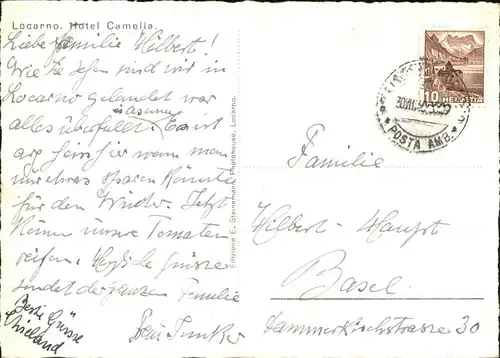 Locarno. Hotel Camelia.
Liebe Familie Hilbert!
Wie Sie sehen sind wir in
Locarno gelandet war
alles überfüllt. Es ist
arg heiss hier wenn man
nur etwas sparen könnte
für den Winter. Jetzt
können unsere Tomaten
reifen. Herzliche Grüsse
sendet der ganzen Familie
Beste Grüsse
Entrierie E. Steinemann, Photohouse, Locarno.
10 HELVETIA
POSTA AMB.
Familie
Hilbert-Haupt
Basel
Dammerkirchstrasse 30